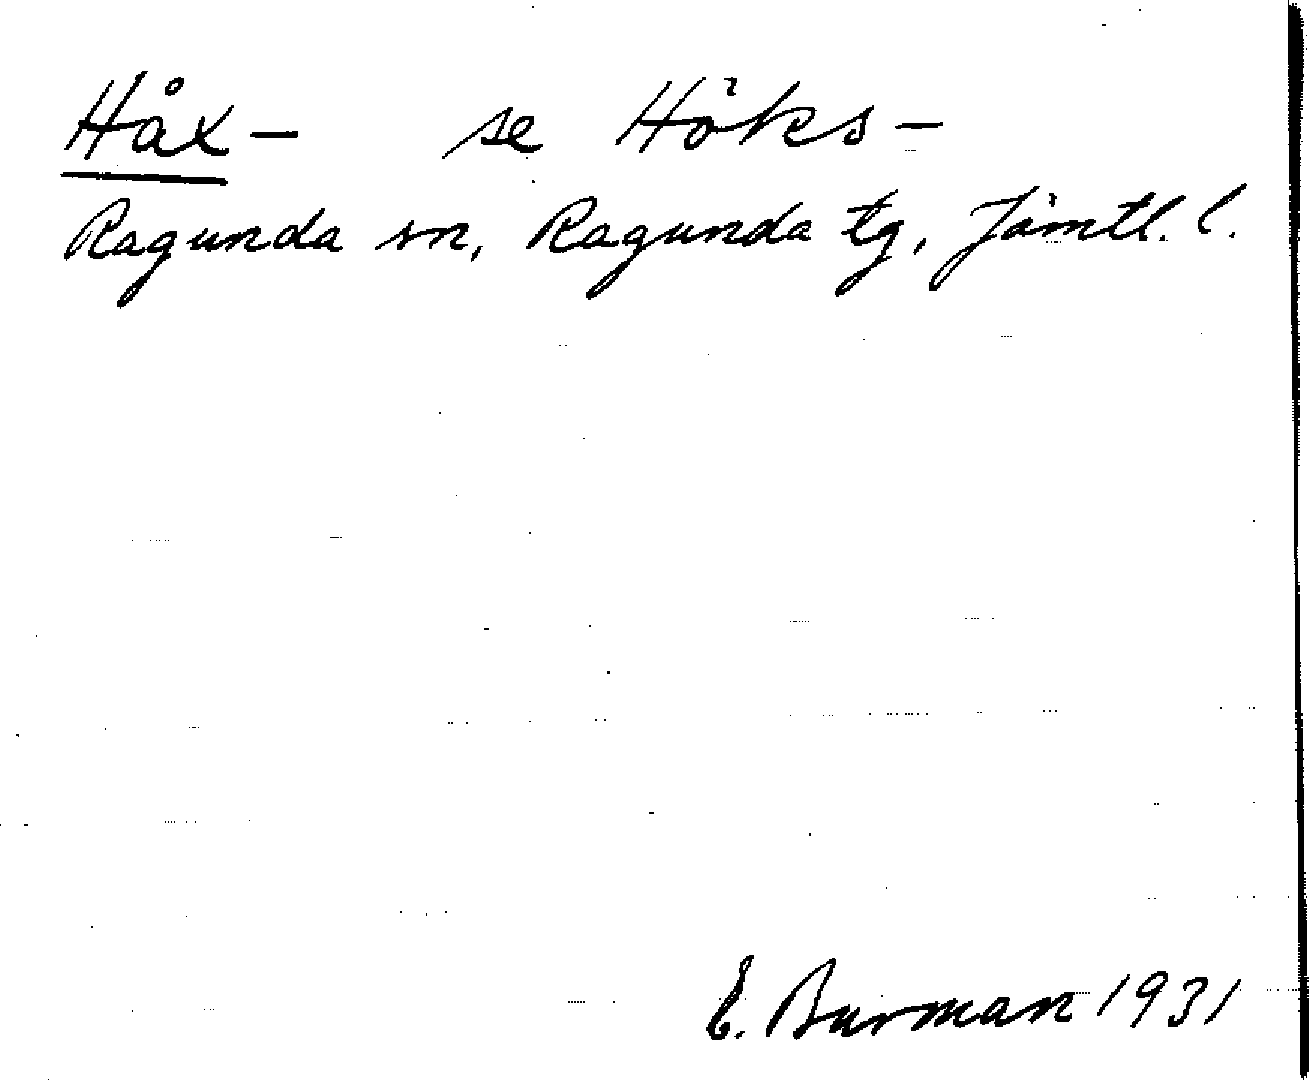 Håx- se Höks-
Ragunda sn, Ragunda tg, Jämtl. l.
E. Burman 1931